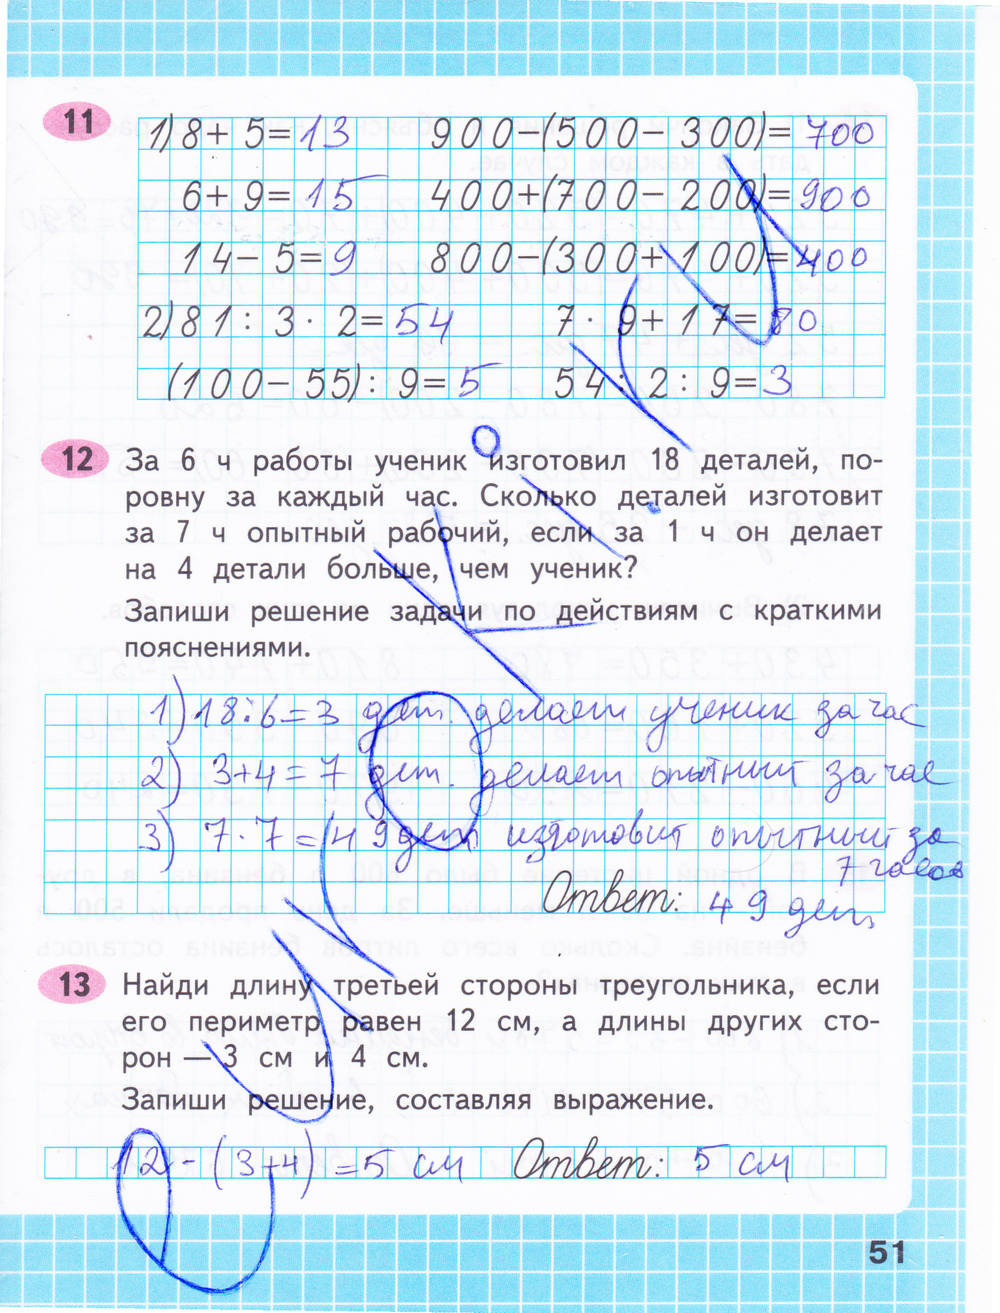 11
1) 8 + 5 = 13 900 - (500 - 300) = 700
6 + 9 = 15 400 + (700 - 200) = 900
14 - 5 = 9 800 - (300 + 100) = 400
2) 81 : 3 · 2 = 54 7 · 9 + 17 = 80
(100 - 55) : 9 = 5 54 : 2 : 9 = 3
12 За 6 ч работы ученик изготовил 18 деталей, по-
ровну за каждый час. Сколько деталей изготовит
за 7 ч опытный рабочий, если за 1 ч он делает
на 4 детали больше, чем ученик?
Запиши решение задачи по действиям с краткими
пояснениями.
1) 18 : 6 = 3 дет. делает ученик за час
2) 3 + 4 = 7 дет. делает опытный за час
3) 7 · 7 = 49 дет изготовит опытный за
7 часов
Ответ: 49 дет.
13 Найди длину третьей стороны треугольника, если
его периметр равен 12 см, а длины других сто-
рон — 3 см и 4 см.
Запиши решение, составляя выражение.
12 - (3 + 4) = 5 см Ответ: 5 см
51